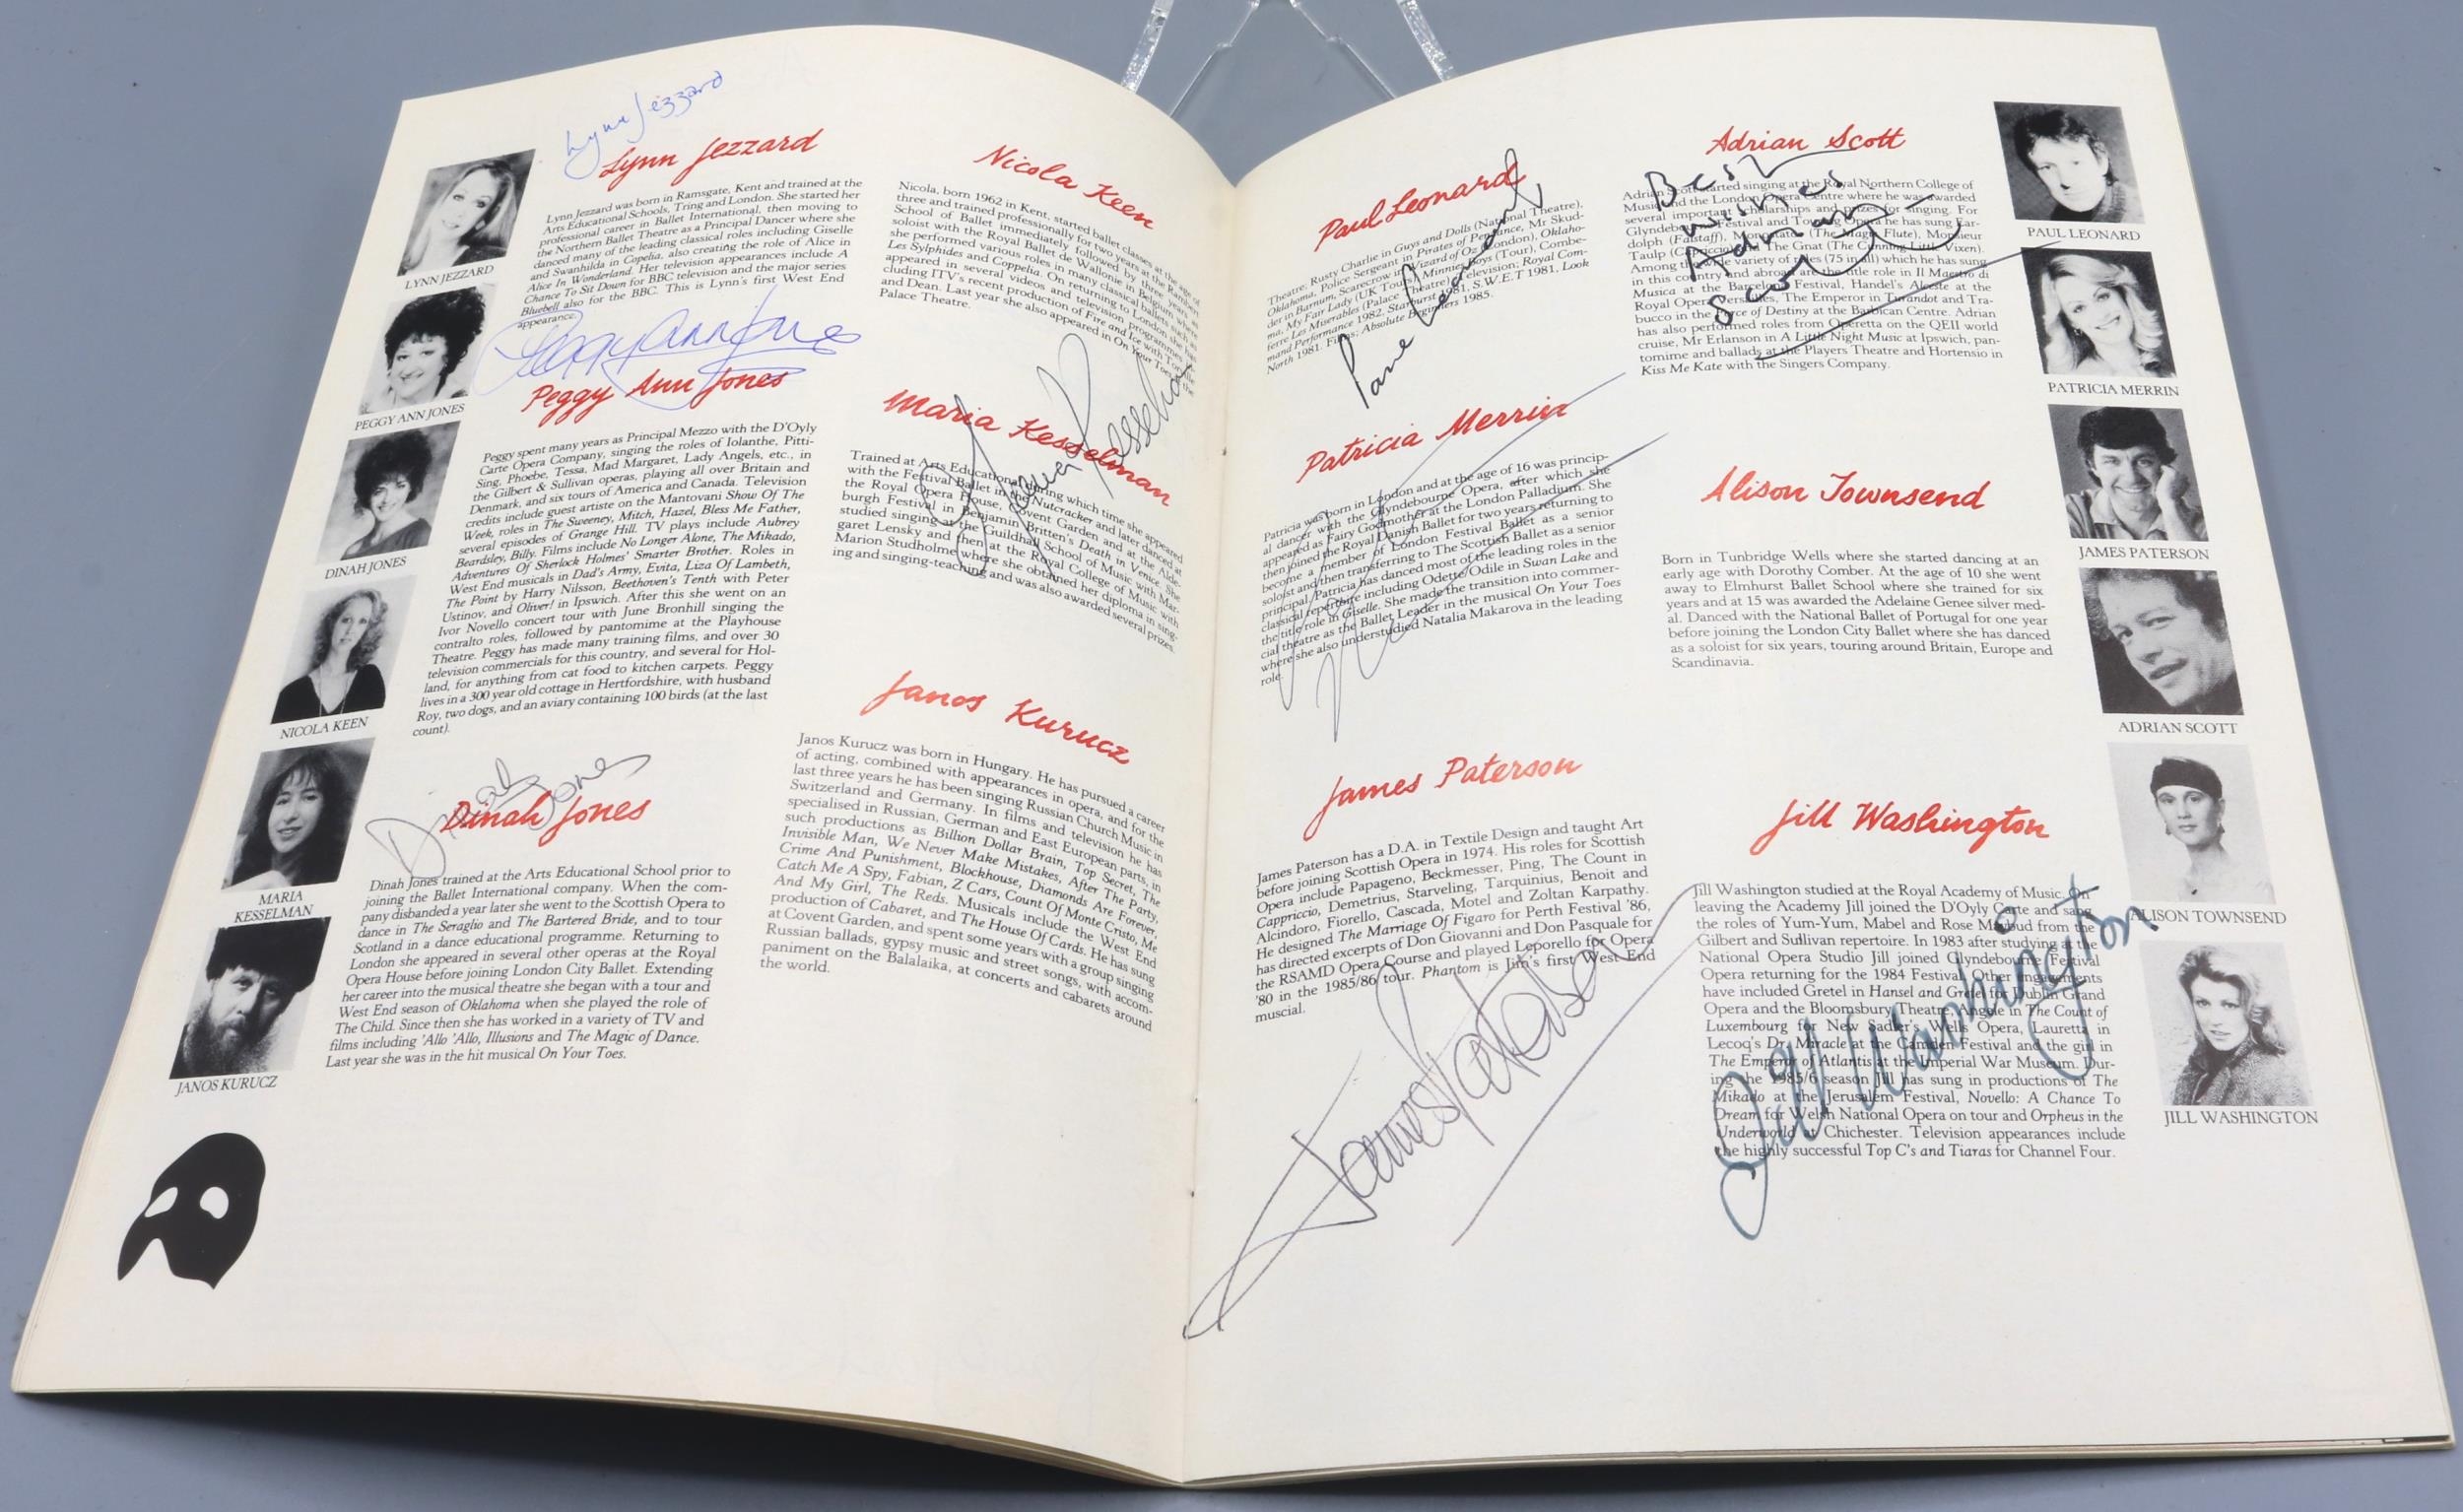 Lynn Jezzard
LYNN JEZZARD
PEGGY ANN JONES
DINAH JONES
NICOLA KEEN
MARIA
KESSELMAN
JANOS KURUCZ
Lynn Jezzard
Lynn Jezzard was born in Ramsgate, Kent and trained at the
Arts Educational Schools, Tring and London. She started her
professional career in Ballet International, then moving to
the Northern Ballet Theatre as a Principal Dancer where she
danced many of the leading classical roles including Giselle
and Swanhilda in Copelia, also creating the role of Alice in
Alice In Wonderland. Her television appearances include A
Chance To Sit Down for BBC television and the major series
Bluebell also for the BBC. This is Lynn's first West End
appearance.
Peggy Ann Jones
Peggy Ann Jones
Peggy spent many years as Principal Mezzo with the D'Oyly
Carte Opera Company, singing the roles of Iolanthe, Pitti-
Sing, Phoebe, Tessa, Mad Margaret, Lady Angels, etc., in
the Gilbert & Sullivan operas, playing all over Britain and
Denmark, and six tours of America and Canada. Television
credits include guest artiste on the Mantovani Show Of The
Week, roles in The Sweeney, Mitch, Hazel, Bless Me Father,
several episodes of Grange Hill. TV plays include Aubrey
Beardsley, Billy. Films include No Longer Alone, The Mikado,
Adventures Of Sherlock Holmes' Smarter Brother. Roles in
West End musicals in Dad's Army, Evita, Liza Of Lambeth,
The Point by Harry Nilsson, Beethoven's Tenth with Peter
Ustinov, and Oliver! in Ipswich. After this she went on an
Ivor Novello concert tour with June Bronhill singing the
contralto roles, followed by pantomime at the Playhouse
Theatre. Peggy has made many training films, and over 30
television commercials for this country, and several for Hol-
land, for anything from cat food to kitchen carpets. Peggy
lives in a 300 year old cottage in Hertfordshire, with husband
Roy, two dogs, and an aviary containing 100 birds (at the last
count).
Dinah Jones
Dinah Jones
Dinah Jones trained at the Arts Educational School prior to
joining the Ballet International company. When the com-
pany disbanded a year later she went to the Scottish Opera to
dance in The Seraglio and The Bartered Bride, and to tour
Scotland in a dance educational programme. Returning to
London she appeared in several other operas at the Royal
Opera House before joining London City Ballet. Extending
her career into the musical theatre she began with a tour and
West End season of Oklahoma when she played the role of
The Child. Since then she has worked in a variety of TV and
films including 'Allo 'Allo, Illusions and The Magic of Dance.
Last year she was in the hit musical On Your Toes.
Nicola Keen
Nicola, born 1962 in Kent, started ballet classes at the age of
three and trained professionally for two years at the Rambert
School of Ballet immediately followed by three years as
soloist with the Royal Ballet de Wallonie in Belgium where
she performed various roles in many classical ballets such as
Les Sylphides and Coppelia. On returning to London she has
appeared in several videos and television programmes in-
cluding ITV's recent production of Fire and Ice with Torville
and Dean. Last year she also appeared in On Your Toes at the
Palace Theatre.
Maria Kesselman
Maria Kesselman
Trained at Arts Educational during which time she appeared
with the Festival Ballet in the Nutcracker and later danced at
the Royal Opera House, Covent Garden and at the Alde-
burgh Festival in Benjamin Britten's Death in Venice. She
studied singing at the Guildhall School of Music with Mar-
garet Lensky and then at the Royal College of Music with
Marion Studholme where she obtained her diploma in sing-
ing and singing-teaching and was also awarded several prizes.
Janos Kurucz
Janos Kurucz was born in Hungary. He has pursued a career
of acting, combined with appearances in opera, and for the
last three years he has been singing Russian Church Music in
Switzerland and Germany. In films and television he has
specialised in Russian, German and East European parts, in
such productions as Billion Dollar Brain, Top Secret, The
Invisible Man, We Never Make Mistakes, After The Party,
Crime And Punishment, Blockhouse, Diamonds Are Forever,
Catch Me A Spy, Fabian, Z Cars, Count Of Monte Cristo, Me
And My Girl, The Reds. Musicals include the West End
production of Cabaret, and The House Of Cards. He has sung
at Covent Garden, and spent some years with a group singing
Russian ballads, gypsy music and street songs, with accom-
paniment on the Balalaika, at concerts and cabarets around
the world.
Paul Leonard
Theatre, Rusty Charlie in Guys and Dolls (National Theatre),
Oklahoma, Police Sergeant in Pirates of Penzance, Mr Skud-
der in Barnum, Scarecrow in Wizard of Oz (London), Oklaho-
ma, My Fair Lady (UK Tours), Minnies Boys (Tour), Combe-
ferre Les Miserables (Palace Theatre) Television; Royal Com-
mand Performance 1982. Starburst 1981, S.W.E.T 1981. Look
North 1981. Films; Absolute Beginners 1985.
Leonard
Patricia Merrin
Patricia was born in London and at the age of 16 was princip-
al dancer with the Glyndebourne Opera, after which she
appeared as Fairy Godmother at the London Palladium. She
then joined the Royal Danish Ballet for two years returning to
become a member of London Festival Ballet as a senior
soloist and then transferring to The Scottish Ballet as a senior
principal. Patricia has danced most of the leading roles in the
classical repertoire including Odette/Odile in Swan Lake and
the title role in Giselle. She made the transition into commer-
cial theatre as the Ballet Leader in the musical On Your Toes
where she also understudied Natalia Makarova in the leading
role.
James Paterson
James Paterson has a D.A. in Textile Design and taught Art
before joining Scottish Opera in 1974. His roles for Scottish
Opera include Papageno, Beckmesser, Ping, The Count in
Cappriccio, Demetrius, Starveling, Tarquinius, Benoit and
Alcindoro, Fiorello, Cascada, Motel and Zoltan Karpathy.
He designed The Marriage Of Figaro for Perth Festival '86,
has directed excerpts of Don Giovanni and Don Pasquale for
the RSAMD Opera Course and played Leporello for Opera
'80 in the 1985/86 tour. Phantom is Jim's first West End
muscial.
James Paterson
Adrian Scott
Best
wishes
Adrian
Scott
Adrian Scott started singing at the Royal Northern College of
Music and the London Opera Centre where he was awarded
several important scholarships and prizes for singing. For
Glyndebourne Festival and Touring Opera he has sung Bar-
dolph (Falstaff), Monostatos (The Magic Flute), Monsieur
Taulp (Capriccio) and The Gnat (The Cunning Little Vixen).
Among the wide variety of roles (75 in all) which he has sung
in this country and abroad are the title role in Il Maestro di
Musica at the Barcelona Festival, Handel's Alceste at the
Royal Opera Versailles, The Emperor in Turandot and Tra-
bucco in the Force of Destiny at the Barbican Centre. Adrian
has also performed roles from Operetta on the QEII world
cruise, Mr Erlanson in A Little Night Music at Ipswich, pan-
tomime and ballads at the Players Theatre and Hortensio in
Kiss Me Kate with the Singers Company.
Alison Townsend
Born in Tunbridge Wells where she started dancing at an
early age with Dorothy Comber. At the age of 10 she went
away to Elmhurst Ballet School where she trained for six
years and at 15 was awarded the Adelaine Genee silver med-
al. Danced with the National Ballet of Portugal for one year
before joining the London City Ballet where she has danced
as a soloist for six years, touring around Britain, Europe and
Scandinavia.
Jill Washington
Jill Washington studied at the Royal Academy of Music. On
leaving the Academy Jill joined the D'Oyly Carte and sang
the roles of Yum-Yum, Mabel and Rose Maybud from the
Gilbert and Sullivan repertoire. In 1983 after studying at the
National Opera Studio Jill joined Glyndebourne Festival
Opera returning for the 1984 Festival. Other engagements
have included Gretel in Hansel and Gretel for Dublin Grand
Opera and the Bloomsbury Theatre, Angele in The Count of
Luxembourg for New Sadler's Wells Opera, Lauretta in
Lecoq's Dr. Miracle at the Camden Festival and the girl in
The Emperor of Atlantis at the Imperial War Museum. Dur-
ing the 1985/6 season Jill has sung in productions of The
Mikado at the Jerusalem Festival, Novello: A Chance To
Dream for Welsh National Opera on tour and Orpheus in the
Underworld at Chichester. Television appearances include
the highly successful Top C's and Tiaras for Channel Four.
Jill Washington
PAUL LEONARD
PATRICIA MERRIN
JAMES PATERSON
ADRIAN SCOTT
ALISON TOWNSEND
JILL WASHINGTON